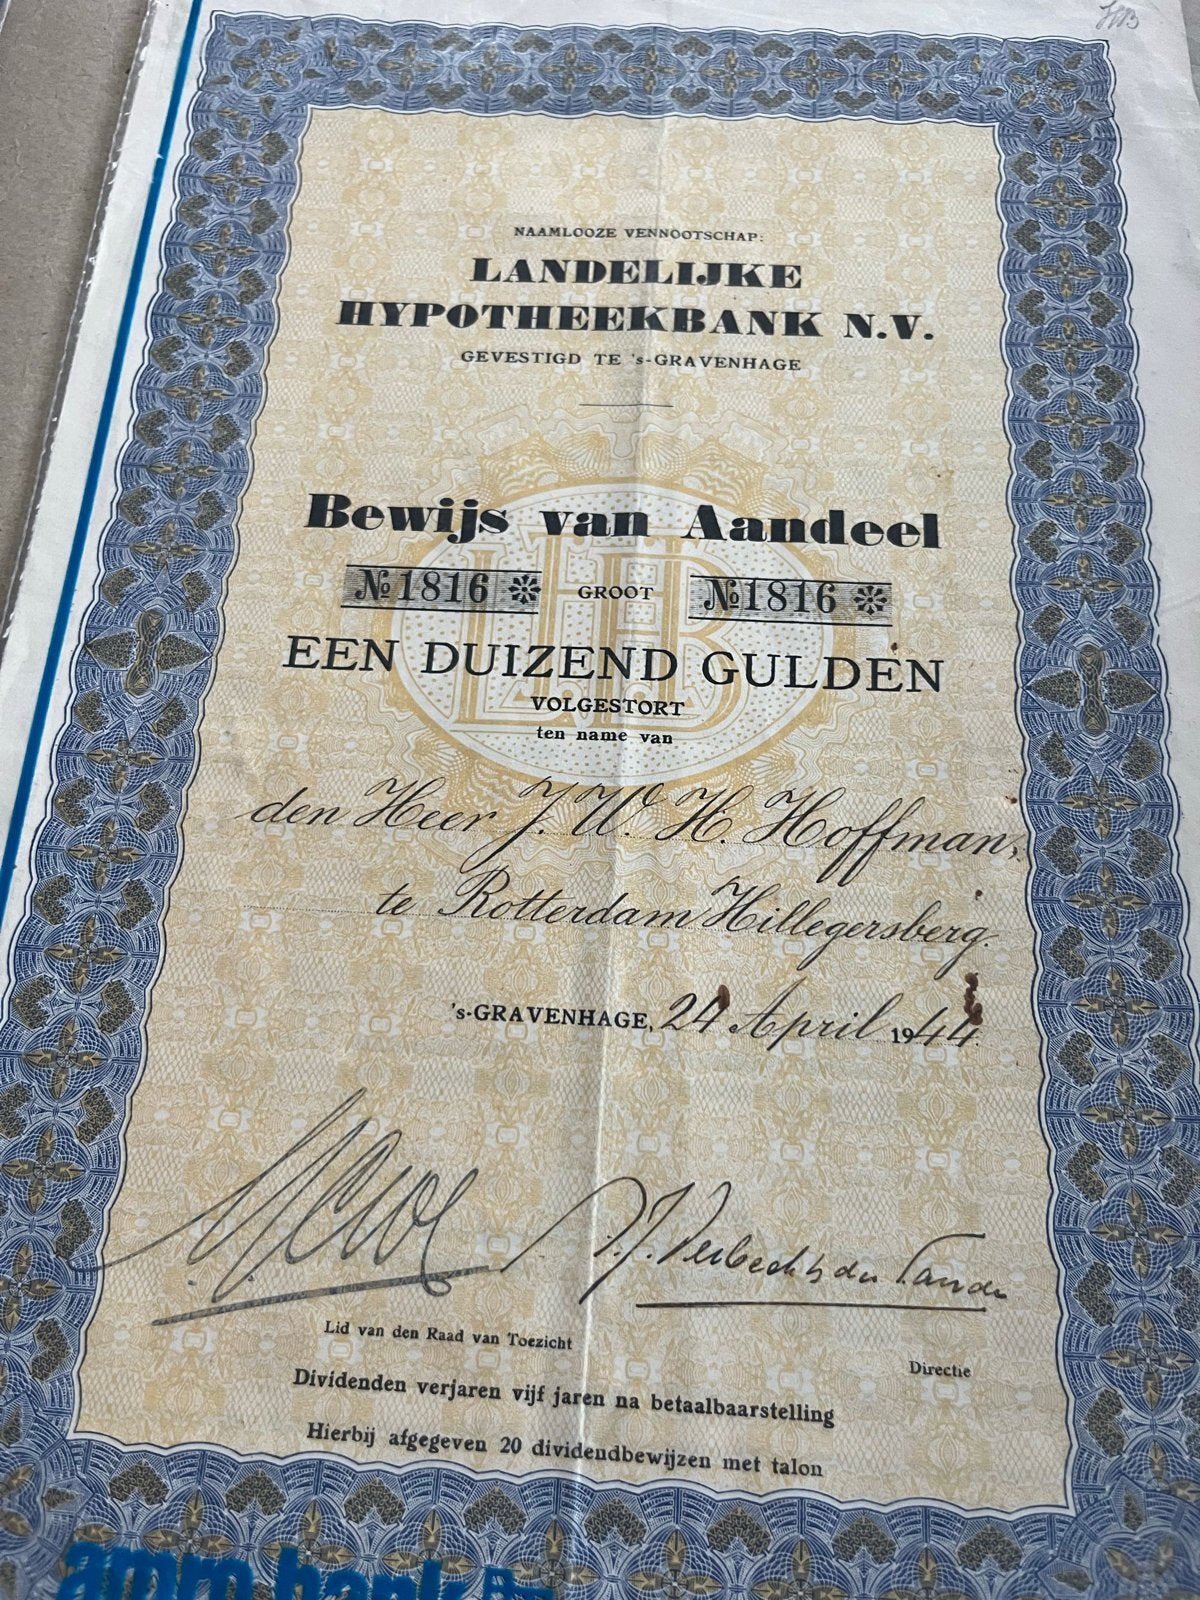 NAAMLOOZE VENNOOTSCHAP:
LANDELIJKE
HYPOTHEEKBANK N.V.
GEVESTIGD TE 's-GRAVENHAGE
Bewijs van Aandeel
№ 1816 GROOT № 1816
EEN DUIZEND GULDEN
VOLGESTORT
ten name van
den Heer J. W. H. Hoffman,
te Rotterdam Hillegersberg.
's-GRAVENHAGE, 24 April 1944.
Lid van den Raad van Toezicht
Directie
Dividenden verjaren vijf jaren na betaalbaarstelling
Hierbij afgegeven 20 dividendbewijzen met talon
amro bank